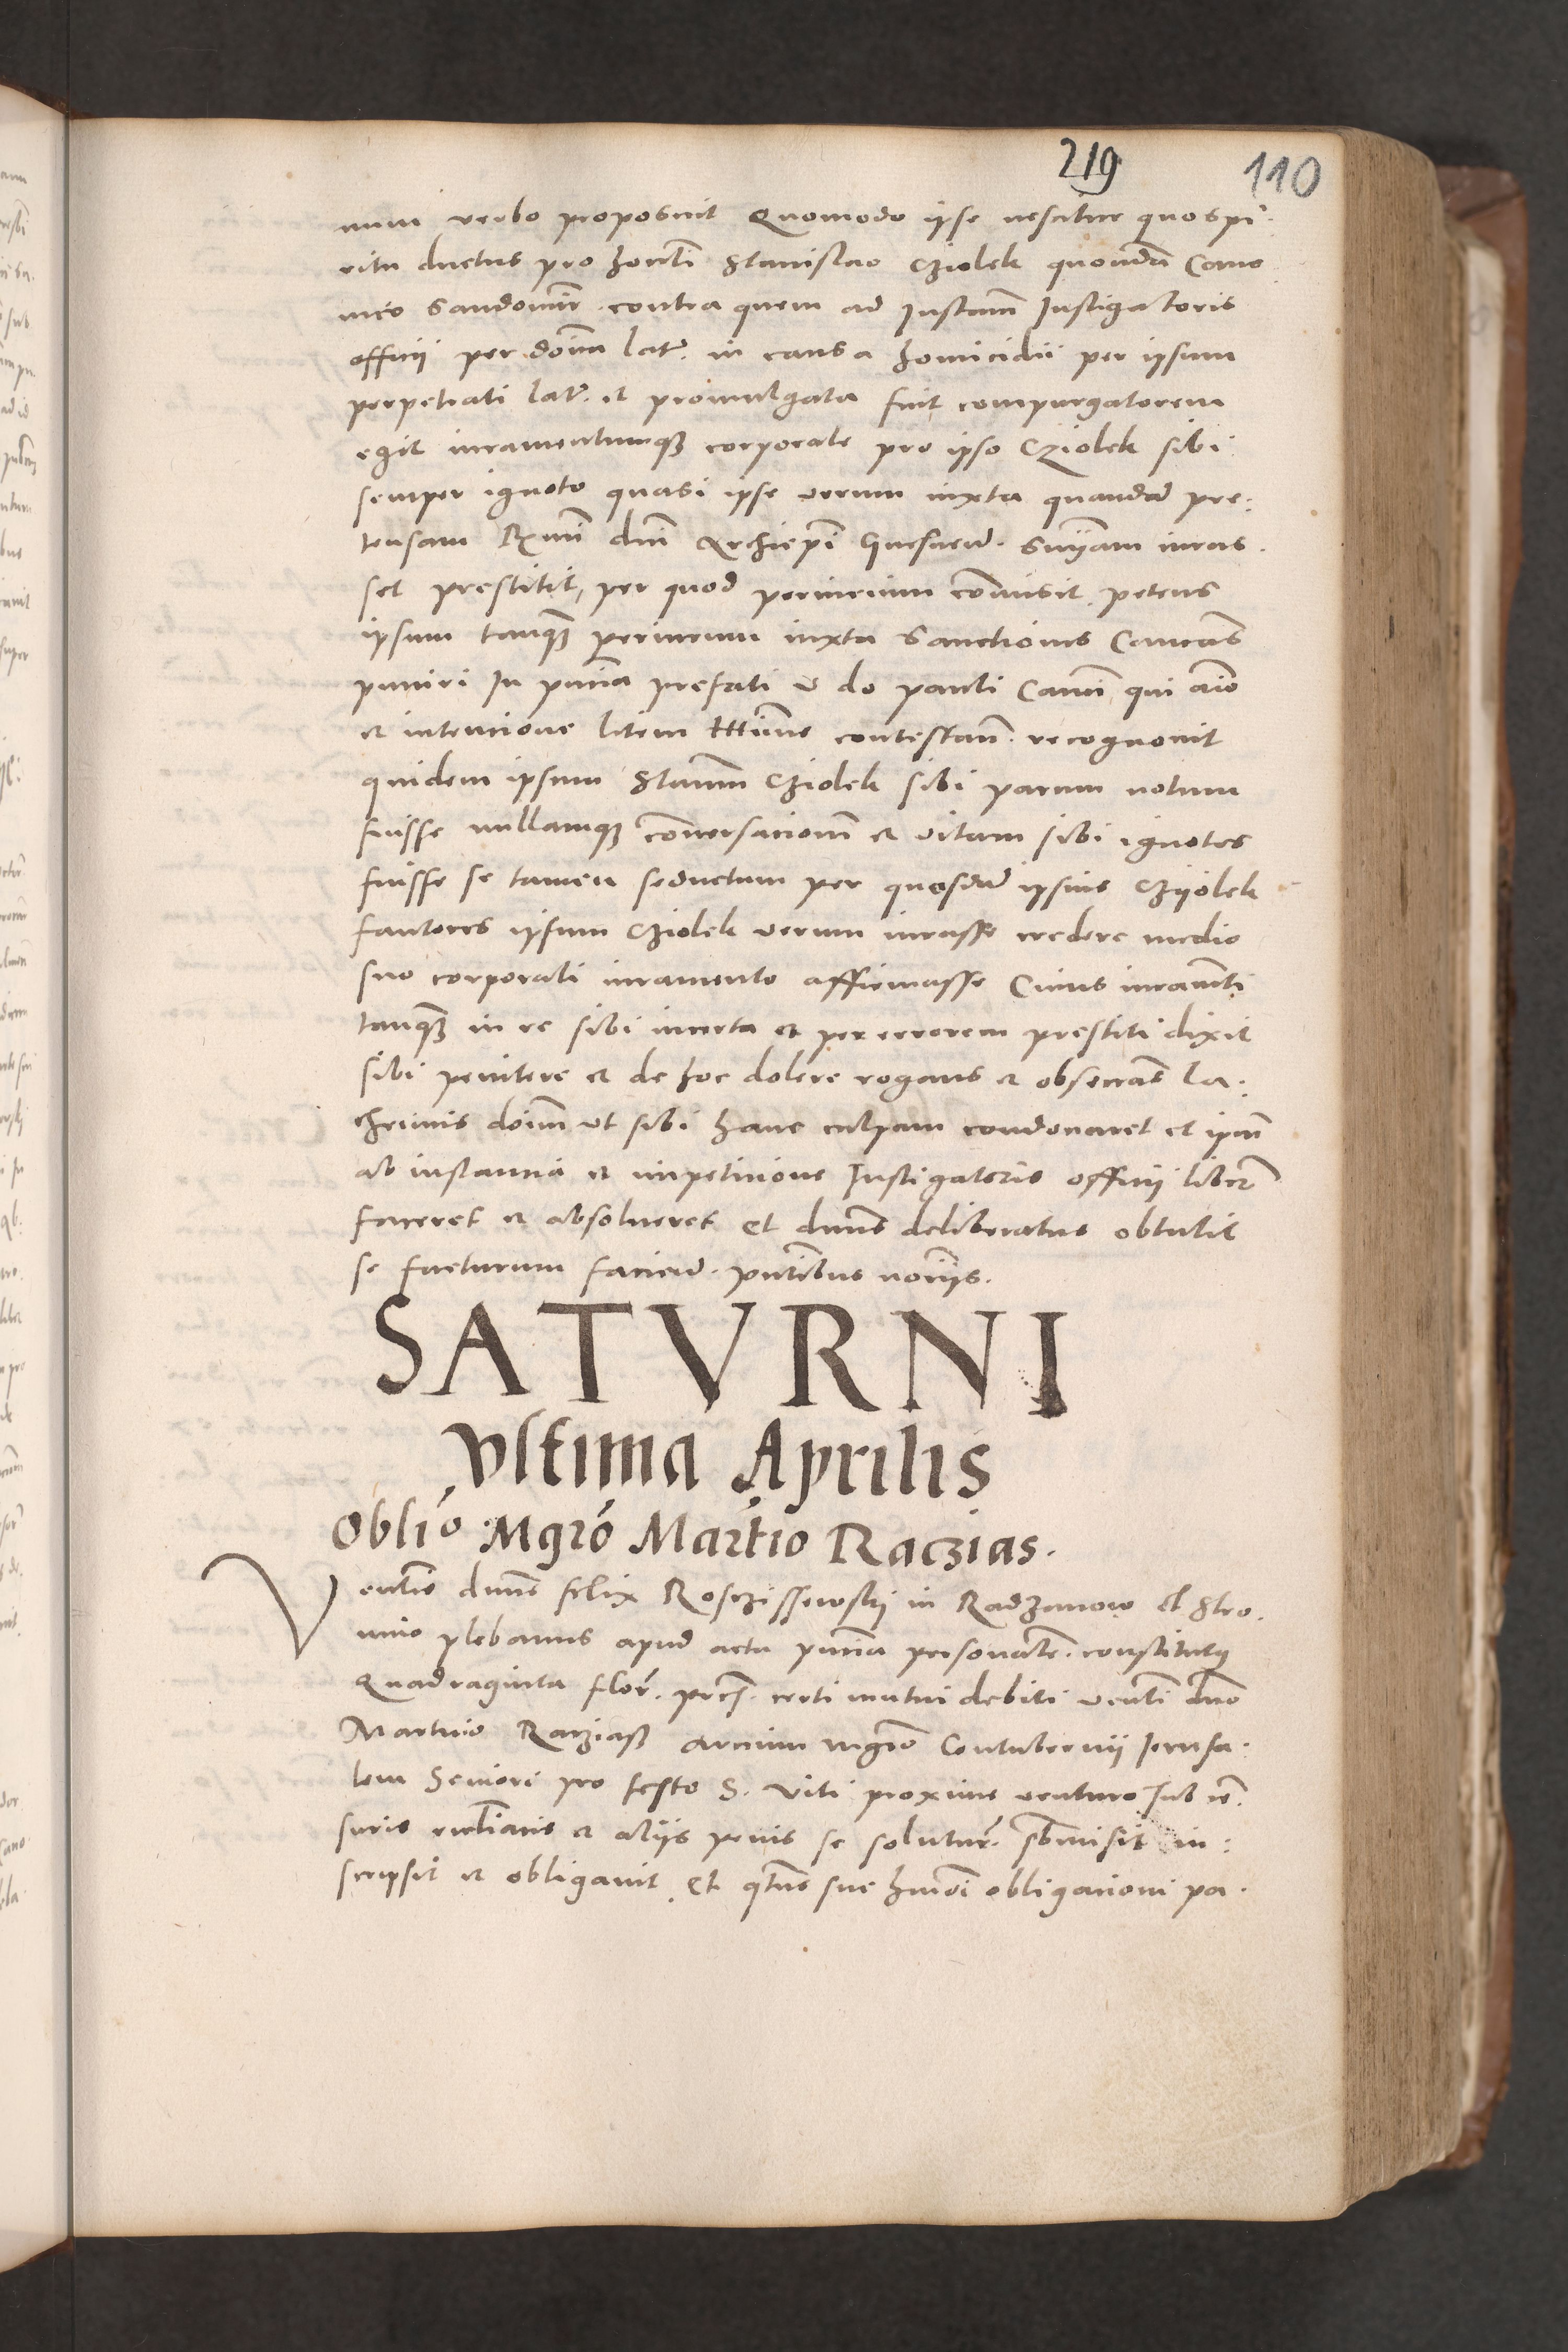 219 110
num verbo proposuit Quomodo ipse nescitur quo spi-
ritu ductus pro honti Stanislao Cziolek quondā Cano
nico Sandomir. contra quem ad Instanm Instigatoris
officij per dōm latē. in causa homicidii per ipsum
perpetrati latē. et promulgata fuit compurgatorem
egit iuramentumqȝ corporale pro ipso Cziolek sibi
semper ignoto quasi ipse verum iuxta quandā pre-
tensam Rxmi dni Archiepi Gnesnen. snīam iuras-
set prestitit, per quod periurium cōmisit petens
ipsum tanqȝ periurum iuxta Sanctiones Cancas
puniri In pntia prefati v do pauli Canci qui aīo
et intencione litem contestan. recognovit
quidem ipsum Stanm Cziolek sibi parum notum
fuisse nullamqȝ conversacionē et vitam sibi ignotas
fuisse se tamen seductum per quosdā ipsius Czijolek
fautores ipsum Cziolek verum iurasse credere medio
suo corporali iuramento affirmasse Cuius iuramti
tanqȝ in re sibi incerta et per errorem prestiti dixit
sibi penitere et de hoc dolere rogans et obsecrās la-
chrimis doīm ut sibi hanc culpam condonaret et ipm
ab instancia et impeticione Instigatoris officij liberū
faceret et absolveret Et dnus deliberatus obtulit
se facturum faciend. pntibus noriis.
SATVRNI
Vltima Aprilis
Oblīo Mgrō Martīo Raczias.
Ventis dnus felix Rosczissewskj in Radzanow et Stro-
mio plebanus apud acta pntia personalr. constitutꝫ
Quadraginta flor. pecꝫ. certi mutui debiti ventī dno
Martino Racziaß Arcium mgrō Contubernij Jerusa-
lem Seniori pro festo S. Viti proxime venturo sub cē-
suris ecclīaticis et aliis penis se solutur. sbmisit in-
scripsit et obligavit Et qtus sue hmōi obligacioni pa-